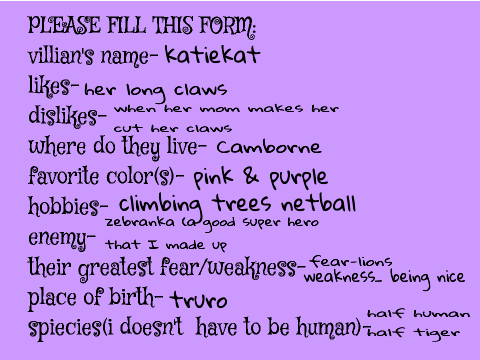 PLEASE FILL THIS FORM:
villian's name- katiekat
likes- her long claws
dislikes- when her mom makes her
cut her claws
where do they live- Camborne
favorite color(s)- pink & purple
hobbies- climbing trees netball
enemy- zebranka (a good super hero
that I made up
their greatest fear/weakness- fear-lions
weakness_ being nice
place of birth- truro
spiecies(i doesn't have to be human)- half human
half tiger